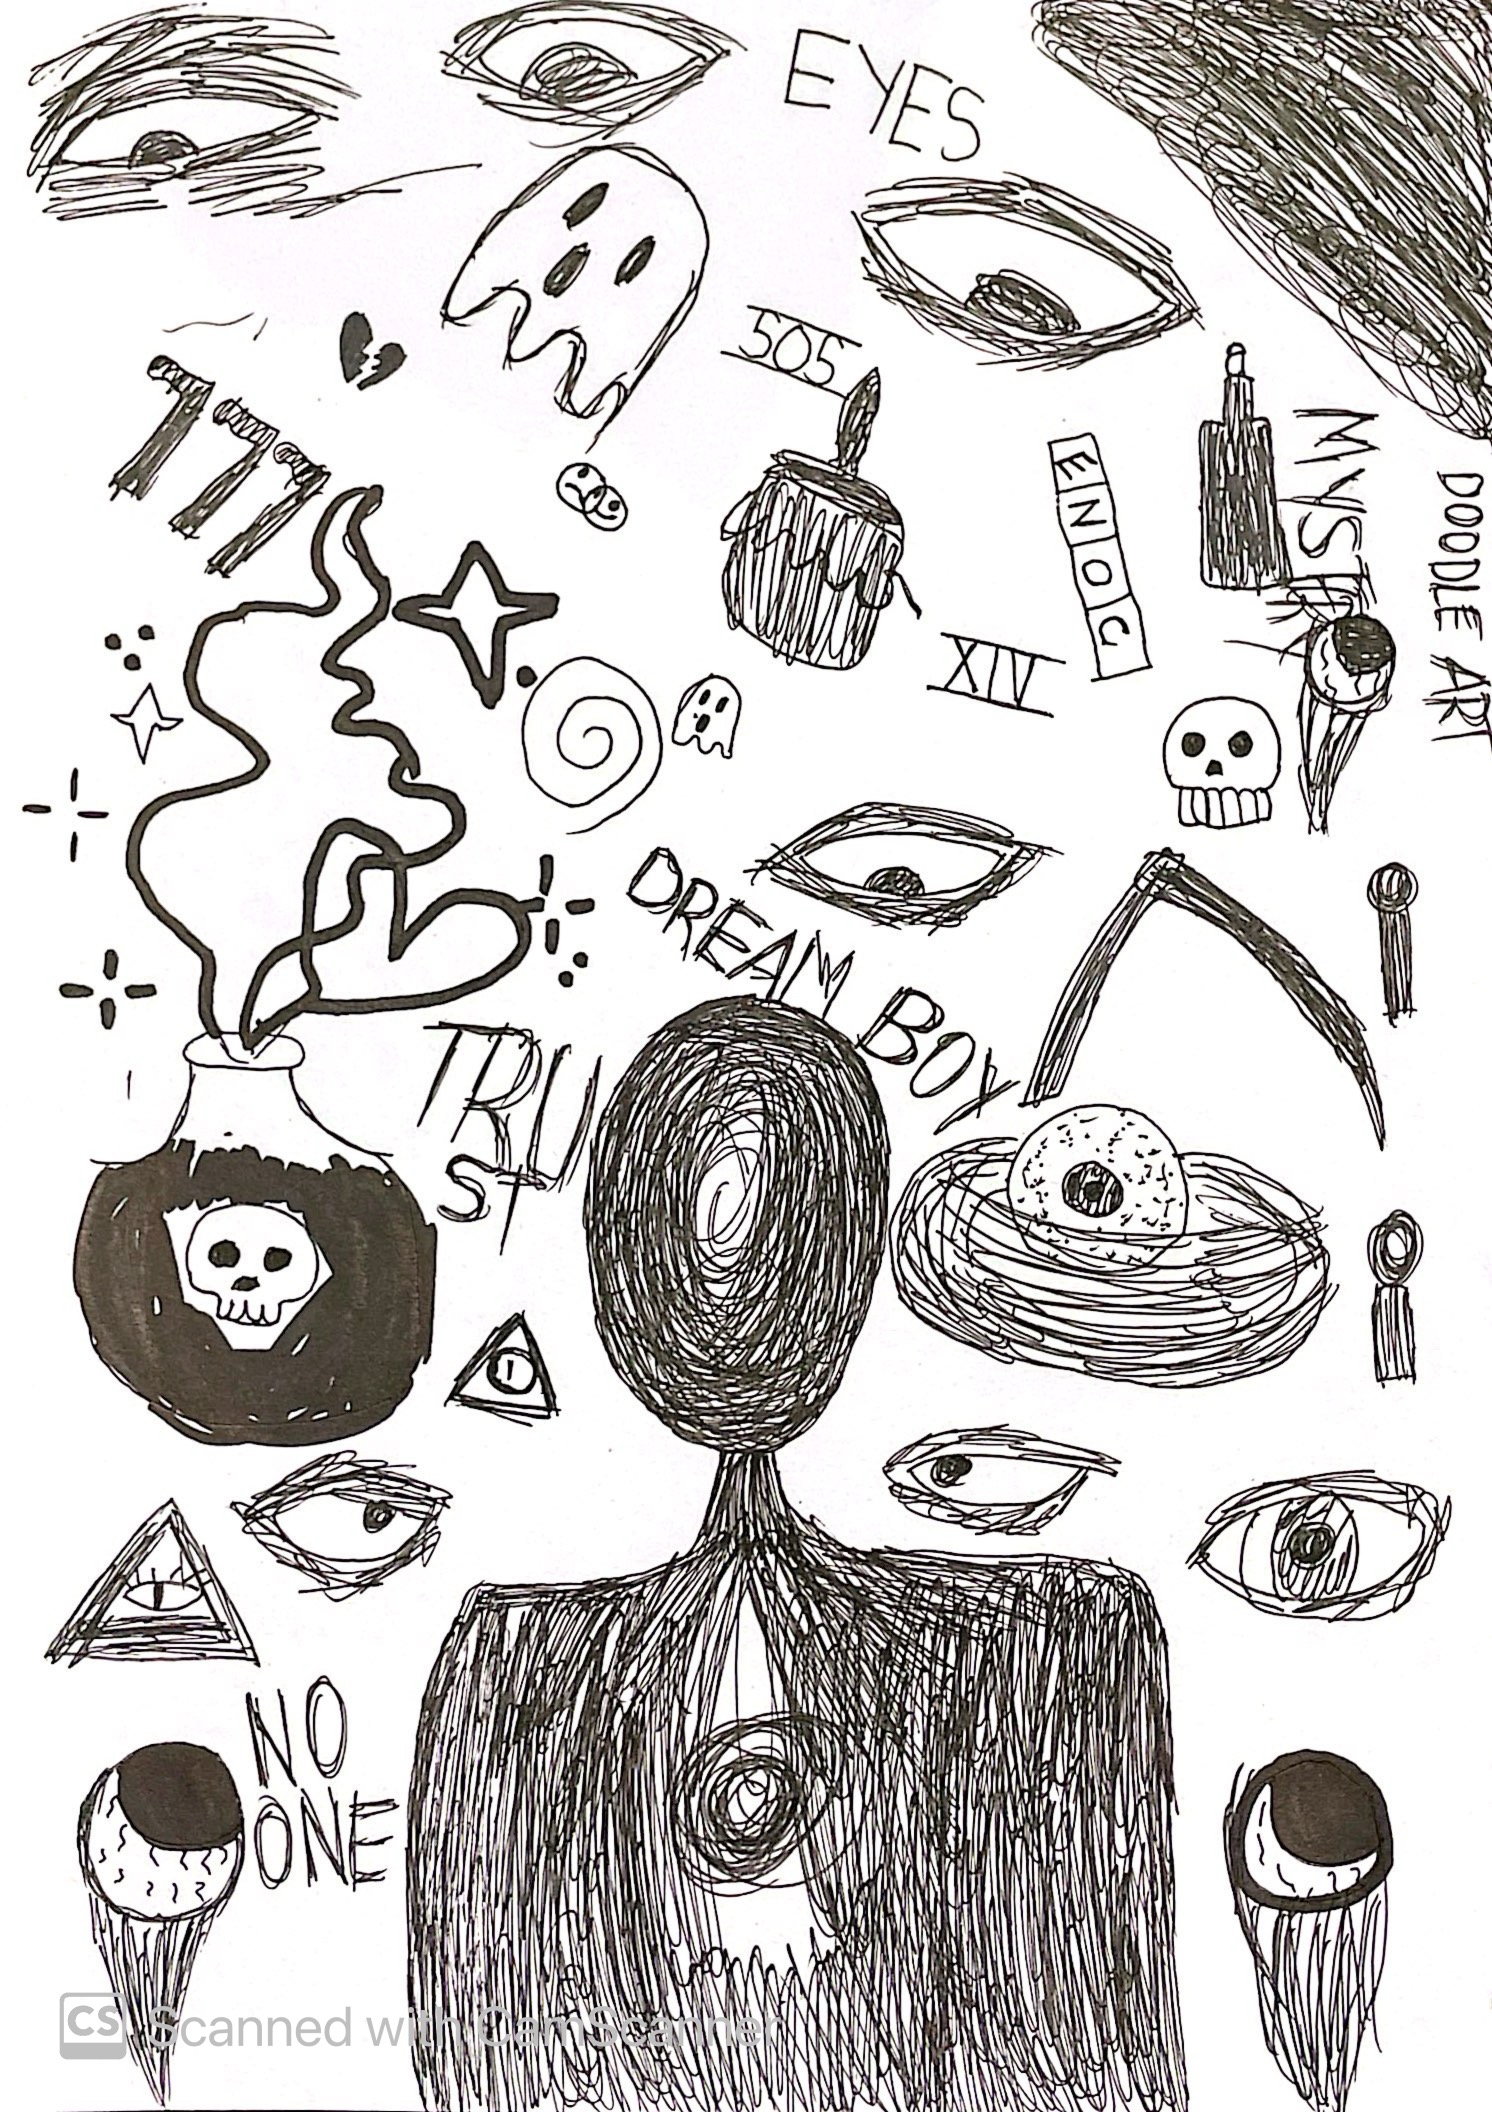 EYES
505
777
ENOC
DOODLE ART
XIV
DREAM BOY
TRU
ST
NO
ONE
CS Scanned with CamScanner